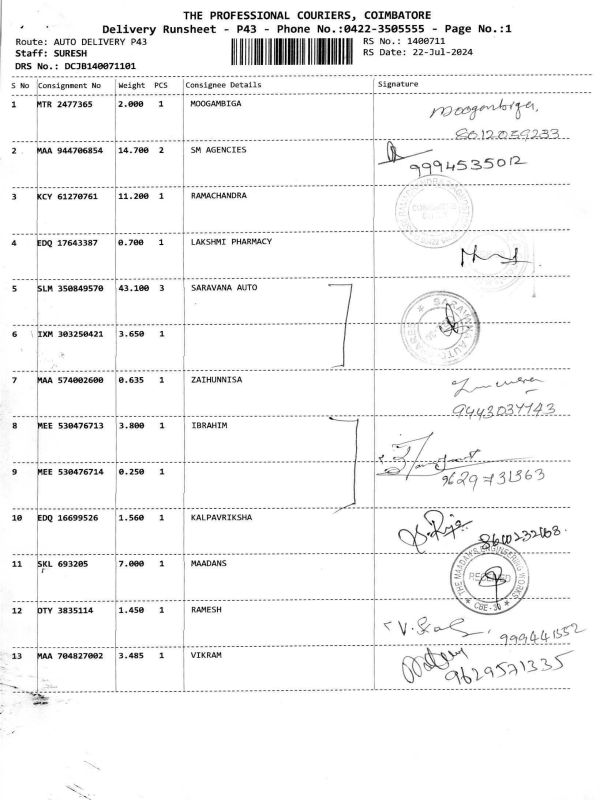 THE PROFESSIONAL COURIERS, COIMBATORE
Delivery Runsheet - P43 - Phone No.:0422-3505555 - Page No.:1
Route: AUTO DELIVERY P43
RS No.: 1400711
Staff: SURESH
RS Date: 22-Jul-2024
DRS No.: DCJB140071101
S No Consignment No Weight PCS Consignee Details Signature
1 MTR 2477365 2.000 1 MOOGAMBIGA Moogambiga,
8012059233
2 MAA 944706854 14.700 2 SM AGENCIES
9994535012
3 KCY 61270761 11.200 1 RAMACHANDRA
4 EDQ 17643387 0.700 1 LAKSHMI PHARMACY
5 SLM 350849570 43.100 3 SARAVANA AUTO
6 IXM 303250421 3.650 1
7 MAA 574002600 0.635 1 ZAIHUNNISA
9443037743
8 MEE 530476713 3.800 1 IBRAHIM
9 MEE 530476714 0.250 1
9629731363
10 EDQ 16699526 1.560 1 KALPAVRIKSHA
11 SKL 693205 7.000 1 MAADANS
THE MAADAN'S ENGINEERING WORKS
RECEIVED
* CBE-30 *
12 OTY 3835114 1.450 1 RAMESH
13 MAA 704827002 3.485 1 VIKRAM
9629571335